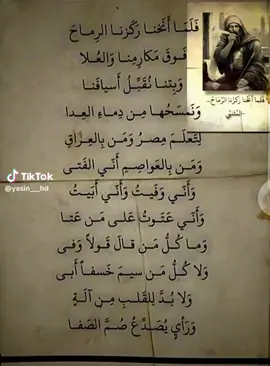 فَلَمّا أَنَخنا رَكَزنا الرِماحَ
فَوقَ مَكارِمِنا وَالعُلا
وَبِتنا نُقَبِّلُ أَسيافَنا
وَنَمسَحُها مِن دِماءِ العِدا
لِتَعلَمَ مِصرُ وَمَن بِالعِراقِ
وَمَن بِالعَواصِمِ أَنّي الفَتى
وَأَنّي وَفَيتُ وَأَنّي أَبَيتُ
وَأَنّي عَتَوتُ عَلى مَن عَتا
وَما كُلُّ مَن قالَ قَولاً وَفى
وَلا كُلُّ مَن سيمَ خَسفاً أَبى
وَلا بُدَّ لِلقَلبِ مِن آلَةٍ
وَرَأيٍ يُصَدِّعُ صُمَّ الصَفا
فَلَمّا أَنَخنا رَكَزنا الرِماحَ..
-المُتَنَبّي
TikTok
@yasin__hd